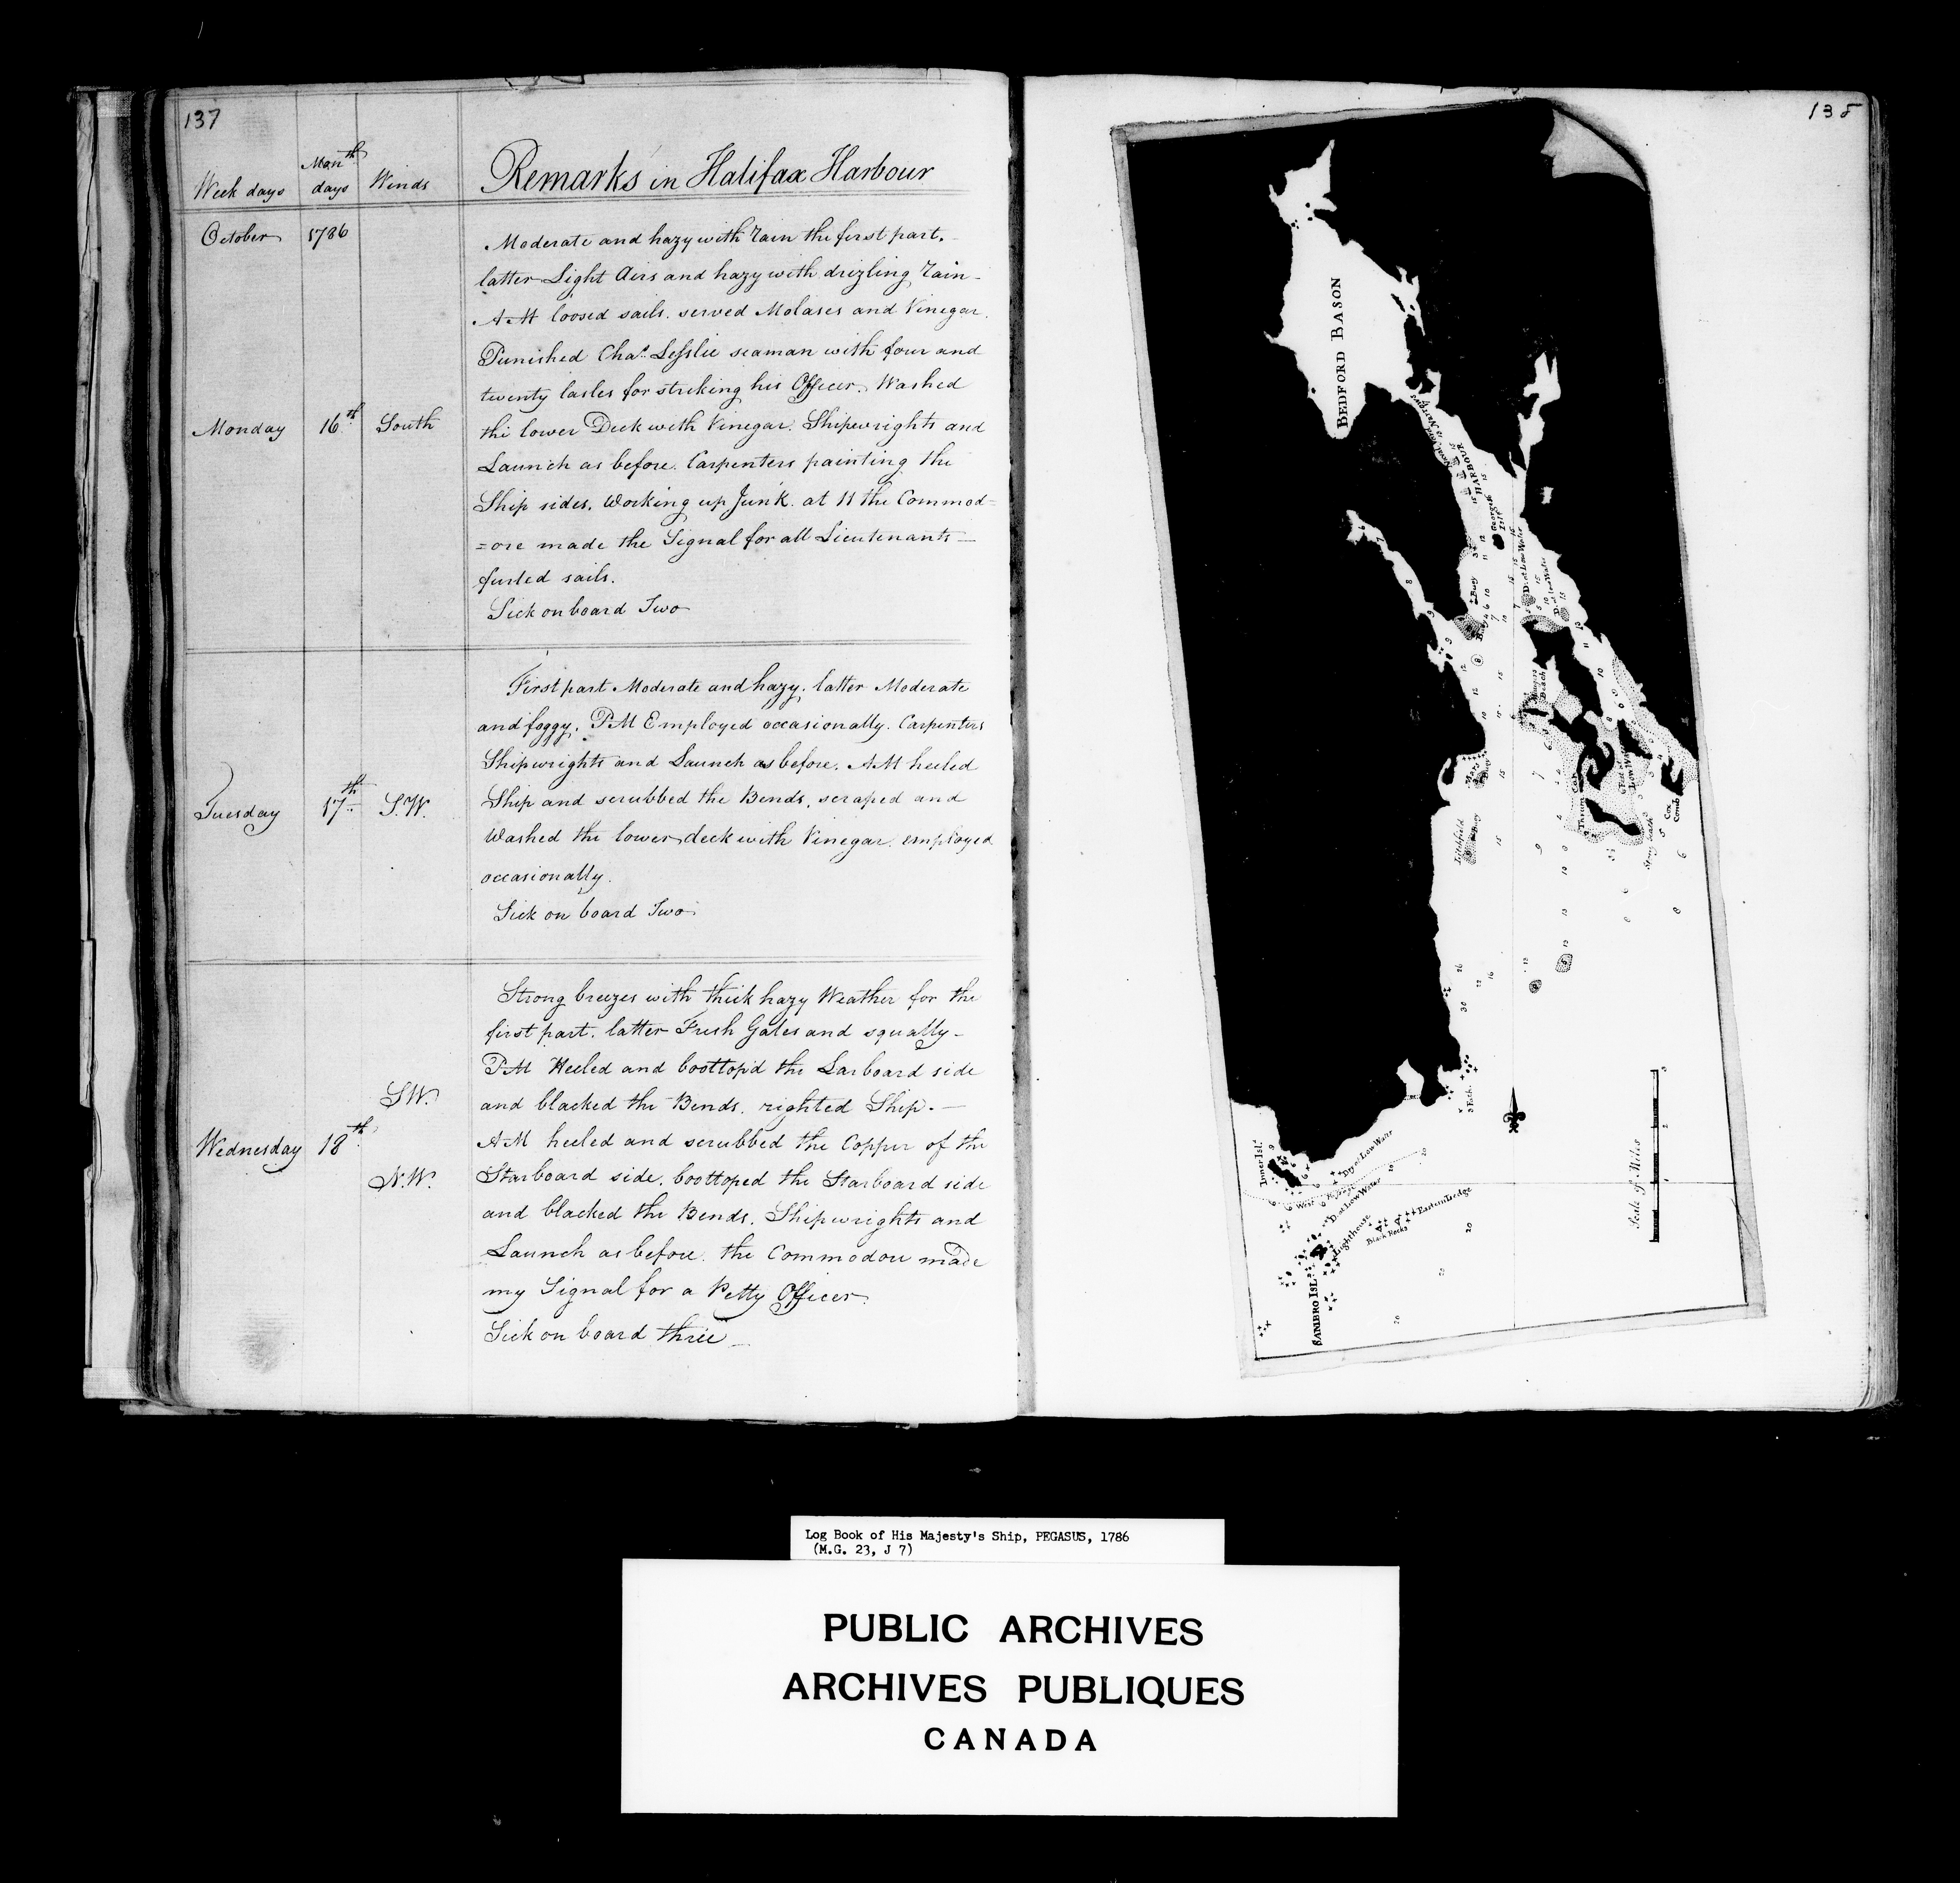 137
Week days
Month days
Winds
Remarks in Halifax Harbour
October 1786
Monday 16th South
Moderate and hazy with rain the first part.
latter Light Airs and hazy with drizling rain
AM loosed sails. served Molases and Vinegar.
Punished Chas. Lesslie seaman with four and
twenty lashes for striking his Officer. Washed
the lower Deck with Vinegar. Shipwrights and
Launch as before. Carpenters painting the
Ship sides. Working up Junk. at 11 the Commod=
=ore made the Signal for all Lieutenants
furled sails.
Sick on board Two
Tuesday 17th S.W.
First part Moderate and hazy. latter Moderate
and foggy. PM Employed occasionally. Carpenters
Shipwrights and Launch as before. AM heeled
Ship and scrubbed the Bends, scraped and
Washed the lower deck with Vinegar. employed
occasionally.
Sick on board Two
Wednesday 18th
SW.
N.W.
Strong breezes with thick hazy Weather for the
first part. latter Fresh Gales and squally
PM Heeled and boottop'd the Larboard side
and blacked the Bends. righted Ship.
AM heeled and scrubbed the Copper of the
Starboard side. boottoped the Starboard side
and blacked the Bends. Shipwrights and
Launch as before. the Commodore made
my Signal for a Petty Officer.
Sick on board three
138
BEDFORD BASON
HARBOUR
Georges Isl.
Buoy
Beach
Litchfield
Thrum Cap
Cox Comb
Inner Isl.
Dry at Low Water
West
D. at Low Water
Lighthouse
Black Rocks
Eastern Ledge
SAMBRO ISL.
Scale of Miles
Log Book of His Majesty's Ship, PEGASUS, 1786
(M.G. 23, J 7)
PUBLIC ARCHIVES
ARCHIVES PUBLIQUES
CANADA